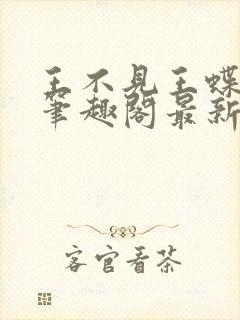 王不见王蝶
笔趣阁最新
客官看茶